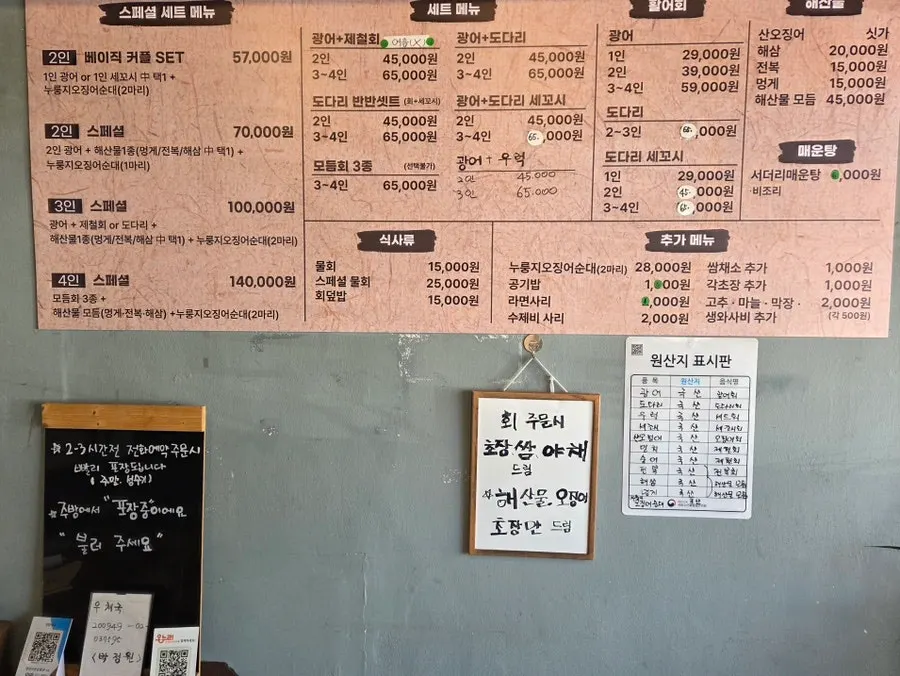 스페셜 세트 메뉴
2인 베이직 커플 SET 57,000원
1인 광어 or 1인 세꼬시 中 택1 +
누룽지오징어순대(2마리)
2인 스페셜 70,000원
2인 광어 + 해산물1종(멍게/전복/해삼 中 택1) +
누룽지오징어순대(1마리)
3인 스페셜 100,000원
광어 + 제철회 or 도다리 +
해산물1종(멍게/전복/해삼 中 택1) + 누룽지오징어순대(2마리)
4인 스페셜 140,000원
모듬회 3종 +
해산물 모듬(멍게·전복·해삼) +누룽지오징어순대(2마리)
세트 메뉴
광어+제철회
2인 45,000원
3~4인 65,000원
도다리 반반셋트 (회+세꼬시)
2인 45,000원
3~4인 65,000원
모듬회 3종 (선택불가)
3~4인 65,000원
광어+도다리
2인 45,000원
3~4인 65,000원
광어+도다리 세꼬시
2인 45,000원
3~4인 65,000원
광어 + 우럭
2인 45.000
3인 65.000
활어회
광어
1인 29,000원
2인 39,000원
3~4인 59,000원
도다리
2~3인 ,000원
도다리 세꼬시
1인 29,000원
2인 45,000원
3~4인 65,000원
해산물
산오징어 싯가
해삼 20,000원
전복 15,000원
멍게 15,000원
해산물 모듬 45,000원
매운탕
서더리매운탕 ,000원
·비조리
식사류
물회 15,000원
스페셜 물회 25,000원
회덮밥 15,000원
추가 메뉴
누룽지오징어순대(2마리) 28,000원
공기밥 1,000원
라면사리 ,000원
수제비 사리 2,000원
쌈채소 추가 1,000원
각초장 추가 1,000원
고추·마늘·막장· 2,000원
생와사비 추가 (각 500원)
☆ 2-3시간전 전화예약 주문시
빨리 포장됩니다
☆주방에서 "포장중이에요
" 불러 주세요 "
우체국
200949-02-
(박정원)
회 주문시
초장 쌈 야채
드림
☆해산물, 오징어
초장만 드림
원산지 표시판
품목 원산지 음식명
광어 국산 광어회
도다리 국산 도다리회
우럭 국산
세꼬시 국산
산오징어 국산 오징어회
멍치 국산
숭어 국산
전복 국산 전복회
해삼 국산 해산물 모듬
멍게 국산 해산물 모듬